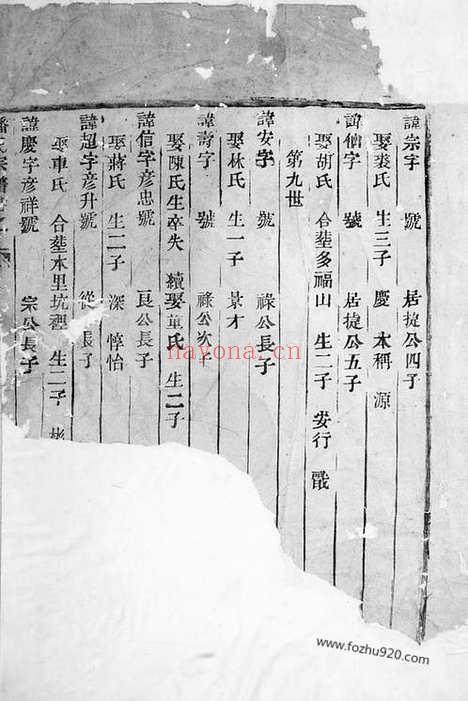 諱宗字 號 居捷公四子
娶裘氏 生三子 慶 水 稱 源
諱僧字 號 居捷公五子
娶胡氏 合塟多福山 生二子 安行 戩
第九世
諱安字 號 祿公長子
娶林氏 生一子 景才
諱壽字 號 祿公次子
娶陳氏生卒失 續娶董氏 生二子
諱信字彦忠號 艮公長子
娶蔣氏 生二子 深 惇怡
諱超字彦升號 從 長子
娶車氏 合塟木里坑裡 生二子 彬
諱慶字彦祥號 宗公長子
潘氏宗譜
nayona.cn
www.fozhu920.com